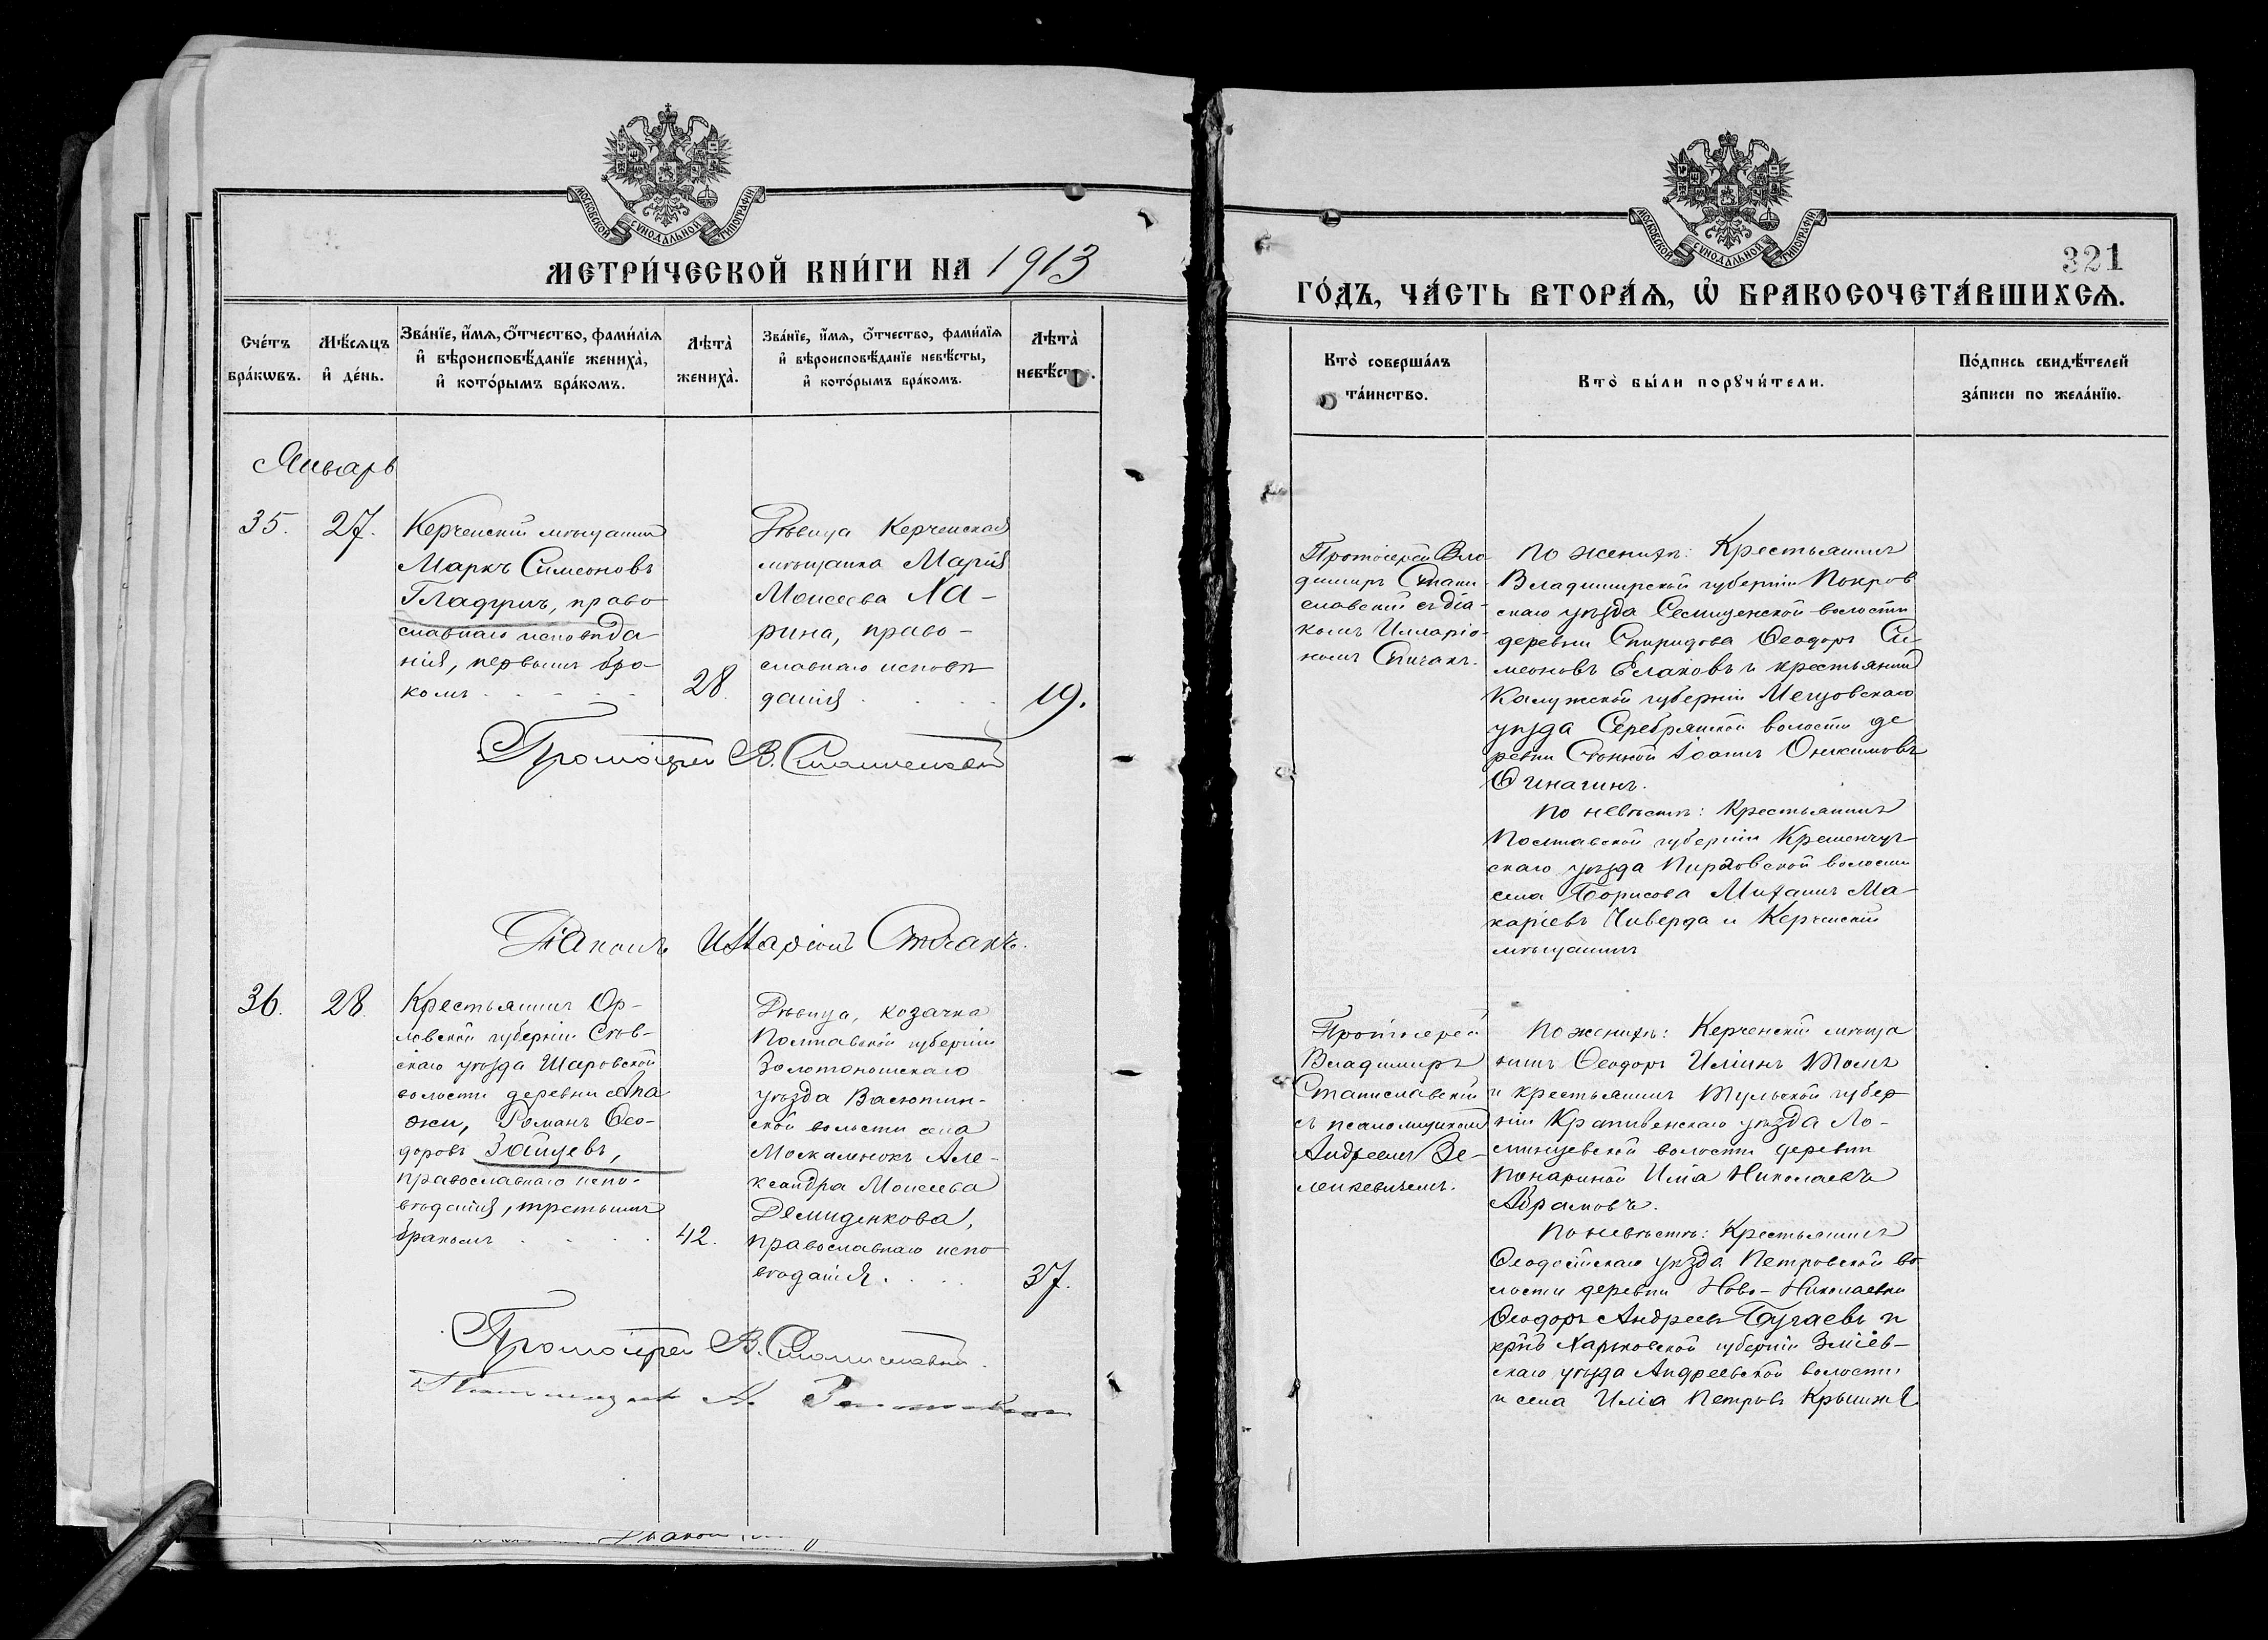 МОСКОВСКОЙ СѴНОДАЛЬНОЙ ТИПОГРАФІИ
МЕТРИ́ЧЕСКОЙ КНИ́ГИ НА 1913
Сче́тъ бра́кωвъ.
Мѣ́сяцъ и҆ де́нь.
Зва́нїе, и҆́мя, ѻ҆́тчество, фами́лїя и҆ вѣроисповѣ́данїе жениха̀, и҆ кото́рымъ бра́комъ.
Лѣта̀ жениха̀.
Зва́нїе, и҆́мя, ѻ҆́тчество, фами́лїя и҆ вѣроисповѣ́данїе невѣ́сты, и҆ кото́рымъ бра́комъ.
Лѣта̀ невѣ́сты.
Январь
35.
27.
Керченскій мѣщанинъ
Маркъ Симеоновъ
Гладунъ, право
славнаго исповѣда
нія, первымъ бра
комъ
28.
Дѣвица Керченская
мѣщанка Марія
Моисеева Ха-
рина, право-
славнаго исповѣ
данія
19.
Протоіерей В. Станиславскій
Діаконъ Иларіонъ Спичакъ.
36.
28
Крестьянинъ Ор-
ловской губерніи Сѣв-
скаго уѣзда Шаровской
волости деревни
Романъ Ѳео-
доровъ Зайцевъ,
православнаго испо-
вѣданія, третьимъ
бракомъ
42.
Дѣвица, козачка
Полтавской губерніи
Золотоношскаго
уѣзда Васютин-
ской волости села
Москаленокъ Але-
ксандра Моисеева
Демиденкова,
православнаго испо
вѣданія.
37.
Протоіерей В. Станиславскій.
Псаломщикъ А. Зенкевичъ
МОСКОВСКОЙ СѴНОДАЛЬНОЙ ТИПОГРАФІИ
321
ГО́ДЪ, ЧА́СТЬ ВТОРА́Я, Ѽ БРАКОСОЧЕТА́ВШИХСЯ.
Кто̀ соверша́лъ та́инство.
Кто̀ бы́ли порꙋчи́тели.
По́дпись свидѣ́телей за́писи по жела́нїю.
Протоіерей Вла
димиръ Стани
славскій съ діа-
кономъ Илларіо-
номъ Спичакъ.
По женихѣ: Крестьянинъ
Владимирской губерніи Покров
скаго уѣзда Селищенской волости
деревни Спиридова Ѳеодоръ Си
меоновъ Елаковъ и крестьянинъ
Калужской губерніи Мещовскаго
уѣзда Серебрянской волости де
ревни Іоаннъ Онисимовъ
Ѳинагинъ.
По невѣстѣ: Крестьянинъ
Полтавской губерніи Кременчуг-
скаго уѣзда волости
села Борисова Михаилъ Ма-
каріевъ Чиверда и Керченскій
мѣщанинъ
Протоіерей
Владимиръ
Станиславскій
съ псаломщикомъ
Андреемъ Зе-
нкевичемъ.
По женихѣ: Керченскій мѣща
нинъ Ѳеодоръ Иліинъ
и крестьянинъ Тульской губер
ніи Крапивенскаго уѣзда Ло-
минцевской волости деревни
Понариной Илія Николаевъ
Абрамовъ.
По невѣстѣ: Крестьянинъ
Ѳеодосійскаго уѣзда Петровской во
лости деревни Ново-Николаевки
Ѳеодоръ Андреевъ Бугаевъ и
крнъ Харьковской губерніи Зміев-
скаго уѣзда Андреевской волости
и села Илія Петровъ